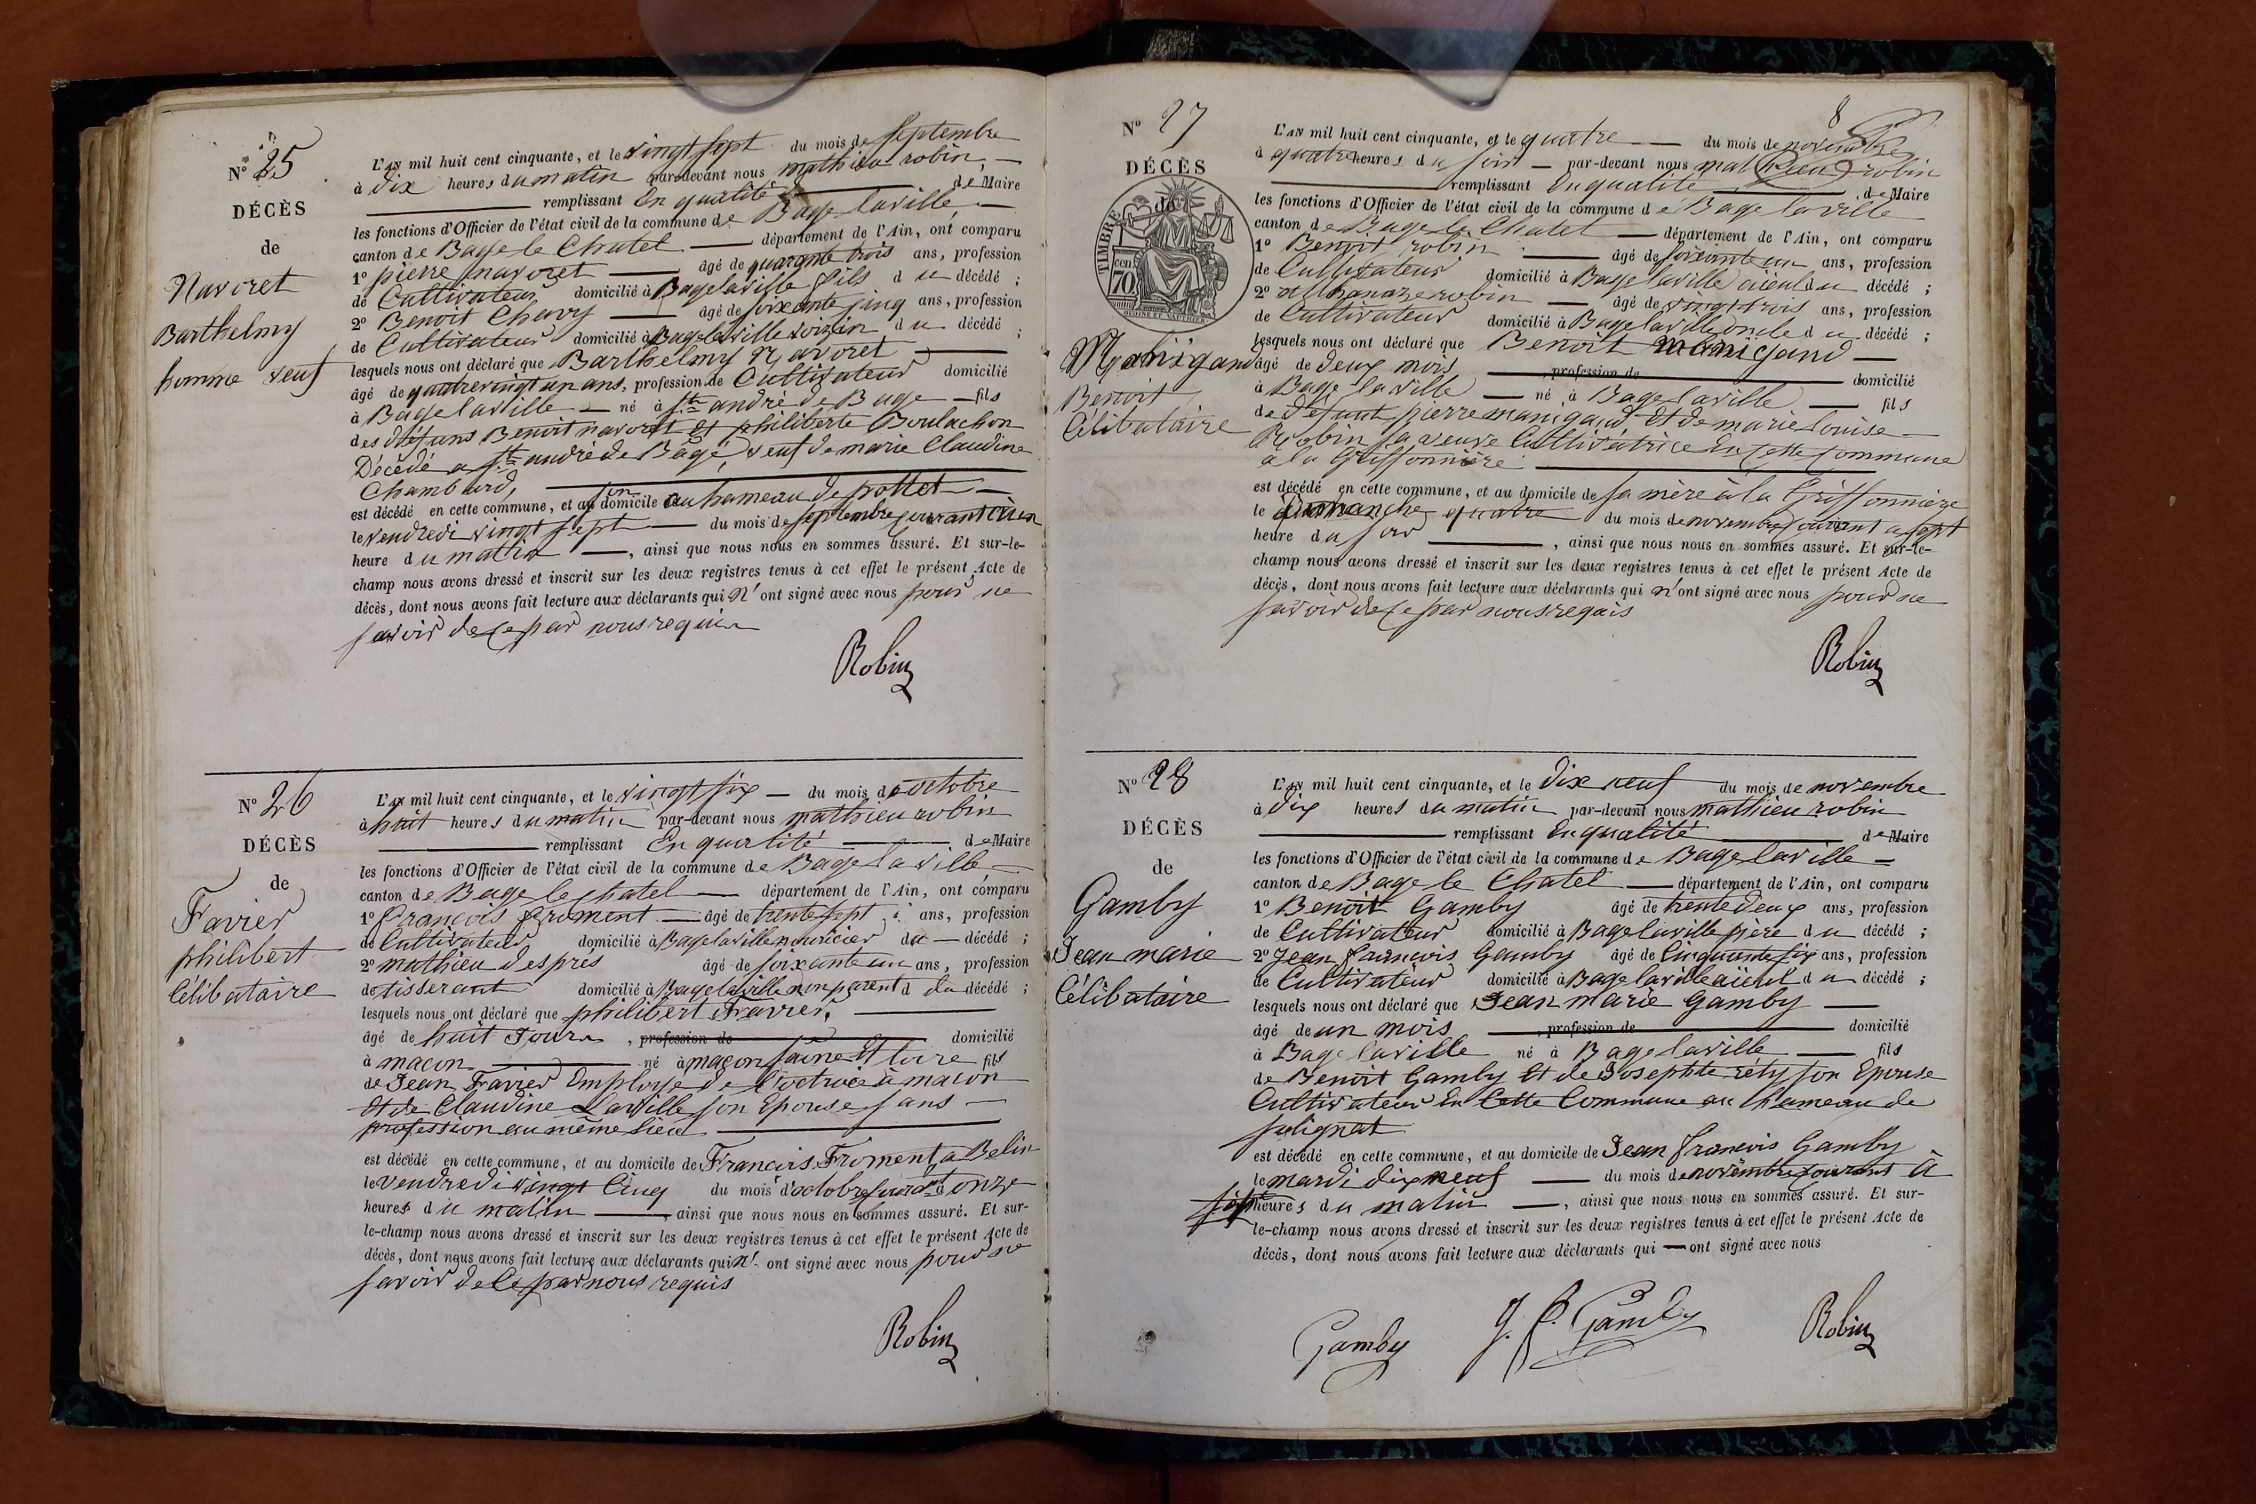 N° 25
DÉCÈS
de
Navoret
Barthelmy
homme veuf
L'AN mil huit cent cinquante, et le vingt sept du mois de septembre
à dix heures du matin par-devant nous mathieu robin
remplissant En qualité de Maire
les fonctions d'Officier de l'état civil de la commune de Bage laville
canton de Bage le Chatel département de l'Ain, ont comparu
1° pierre navoret âgé de quarante trois ans, profession
de Cultivateur domicilié à Bage laville fils du décédé ;
2° Benoit Chavy âgé de soixante cinq ans, profession
de Cultivateur domicilié à Bage laville voizin du décédé ;
lesquels nous ont déclaré que Barthelmy Navoret
âgé de quatre vingt un ans, profession de Cultivateur domicilié
à Bage laville né à st andré de Bage fils
des défuns Benoit navoret et philiberte Boulachon
Décédé a st andré de Bagé, veuf de marie Claudine
Chambard,
est décédé en cette commune, et au domicile son au hameau de pottet
le vendredi vingt sept du mois de septembre courant à
heure du matin, ainsi que nous nous en sommes assuré. Et sur-le-
champ nous avons dressé et inscrit sur les deux registres tenus à cet effet le présent Acte de
décès, dont nous avons fait lecture aux déclarants qui n'ont signé avec nous pour ne
savoir de ce par nous requis
Robin
N° 26
DÉCÈS
de
Favier
philibert
Célibataire
L'AN mil huit cent cinquante, et le vingt six du mois d'octobre
à huit heures du matin par-devant nous mathieu robin
remplissant En qualité de Maire
les fonctions d'Officier de l'état civil de la commune de Bage laville
canton de Bage le chatel département de l'Ain, ont comparu
1° francois froment âgé de trente sept ans, profession
de Cultivateur domicilié à Bage laville nouricier du décédé ;
2° mathieu despres âgé de soixante un ans, profession
de tisserant domicilié à Bage laville non parent d du décédé ;
lesquels nous ont déclaré que philibert Favier,
âgé de huit Jours, profession de domicilié
à macon né à macon saône Et loire fils
de Jean Favier Employe de l'octroie à macon
Et de Claudine Laville son Epouse sans
profession au même lieu
est décédé en cette commune, et au domicile de Francois Froment a Belin
le vendredi vingt Cinq du mois d'octobre courant à onze
heures du matin, ainsi que nous nous en sommes assuré. Et sur-
le-champ nous avons dressé et inscrit sur les deux registres tenus à cet effet le présent Acte de
décès, dont nous avons fait lecture aux déclarants qui n' ont signé avec nous pour ne
savoir de Ce par nous requis
Robin
8
N° 27
DÉCÈS
de
TIMBRE
1 cent
70
Manigand
Benoit
Célibataire
L'AN mil huit cent cinquante, et le quatre du mois de novembre
à quatre heures du soir par-devant nous mathieu robin
remplissant En qualité de Maire
les fonctions d'Officier de l'état civil de la commune de Bage laville
canton de Bage le Chatel département de l'Ain, ont comparu
1° Benoit robin âgé de soixante un ans, profession
de Cultivateur domicilié à Bage laville aïeul du décédé ;
2° athanaze robin âgé de vingt trois ans, profession
de Cultivateur domicilié à Bage laville oncle du décédé ;
lesquels nous ont déclaré que Benoit manigand
âgé de deux mois profession de domicilié
à Bage la ville né à Bage laville fils
de défunt pierre manigand Et de marie louise
Robin sa veuve Cultivatrice En Cette Commune
a la Griffonnière
est décédé en cette commune, et au domicile de sa mère à la Griffonnière
le dimanche quatre du mois de novembre courant a sept
heure du soir, ainsi que nous nous en sommes assuré. Et sur-le-
champ nous avons dressé et inscrit sur les deux registres tenus à cet effet le présent Acte de
décès, dont nous avons fait lecture aux déclarants qui n'ont signé avec nous pour ne
savoir de Ce par nous requis
Robin
N° 28
DÉCÈS
de
Gamby
Jean marie
Célibataire
L'AN mil huit cent cinquante, et le Dix neuf du mois de novembre
à dix heures du matin par-devant nous mathieu robin
remplissant En qualité de Maire
les fonctions d'Officier de l'état civil de la commune de Bage laville
canton de Bage le Chatel département de l'Ain, ont comparu
1° Benoit Gamby âgé de trente deux ans, profession
de Cultivateur domicilié à Bage laville père du décédé ;
2° Jean francois Gamby âgé de Cinquante six ans, profession
de Cultivateur domicilié à Bage laville aïeul du décédé ;
lesquels nous ont déclaré que Jean marie Gamby
âgé de un mois profession de domicilié
à Bage laville né à Bage laville fils
de Benoit Gamby Et de Josephte réty son Epouse
Cultivateur En Cette Commune au hameau de
solignat
est décédé en cette commune, et au domicile de Jean francois Gamby
le mardi dix neuf du mois de novembre courant à
sept heures du matin, ainsi que nous nous en sommes assuré. Et sur-
le-champ nous avons dressé et inscrit sur les deux registres tenus à cet effet le présent Acte de
décès, dont nous avons fait lecture aux déclarants qui ont signé avec nous
Gamby J. f. Gamby Robin